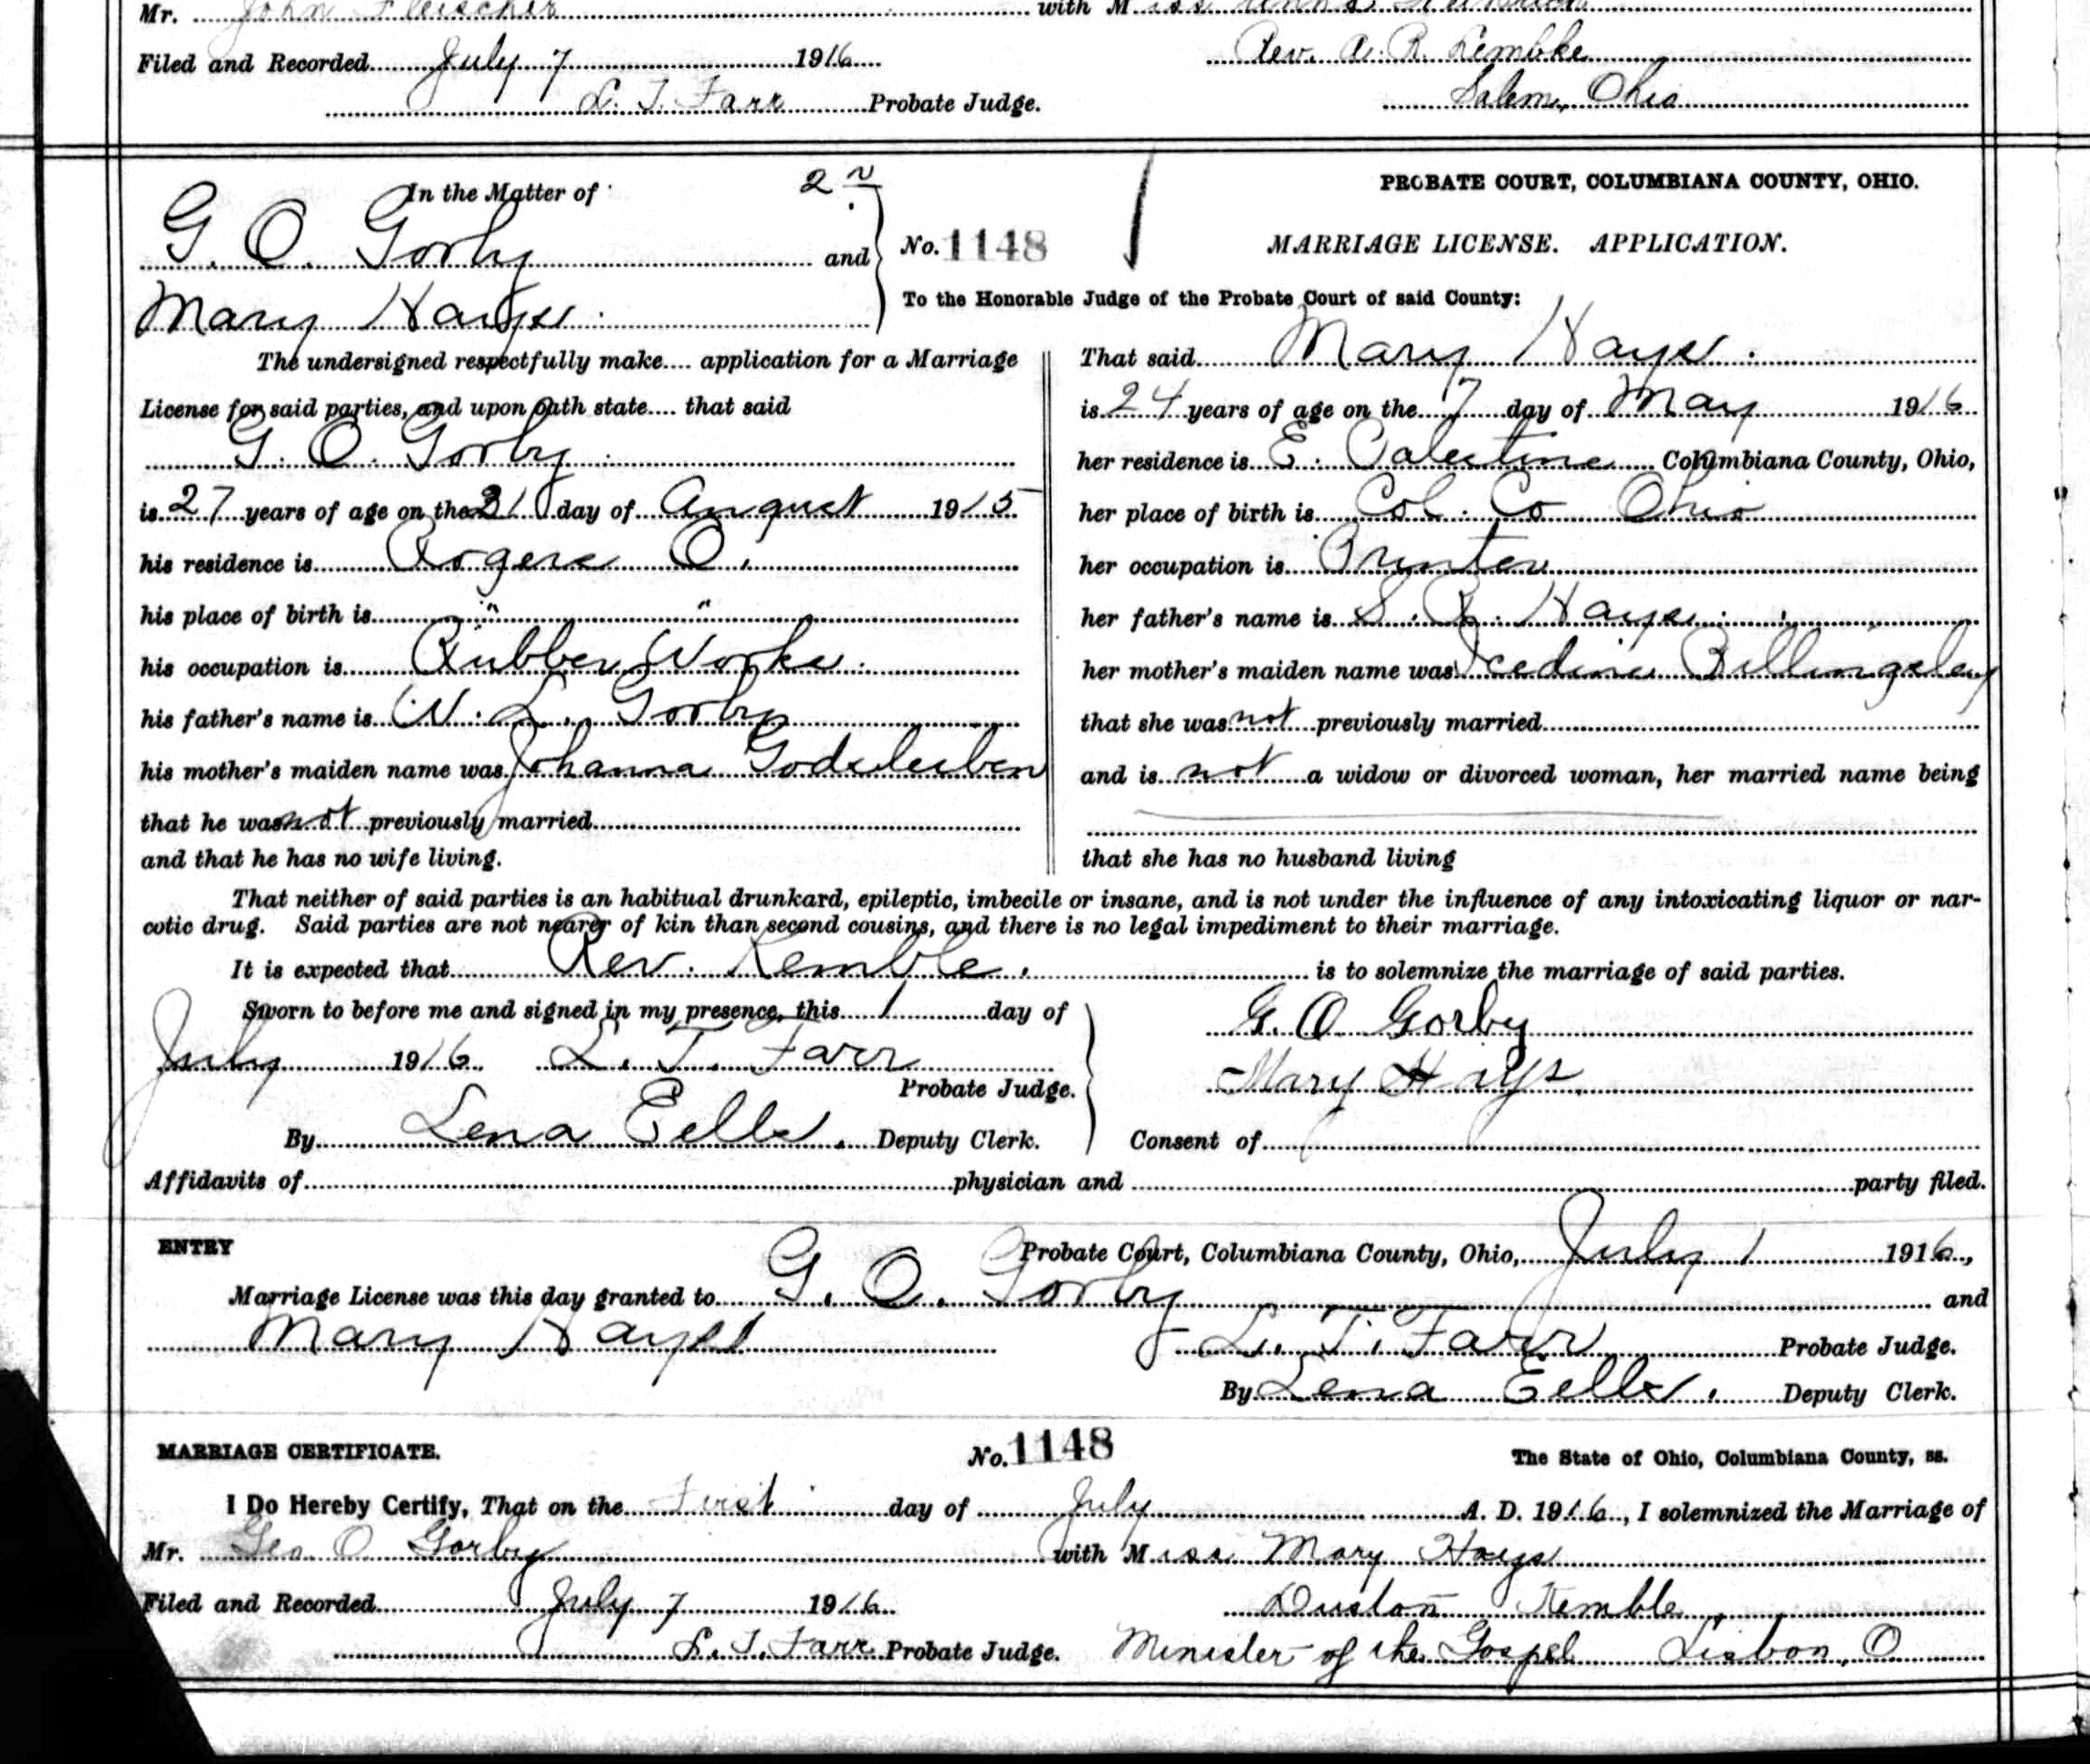 Mr. John Fleischer with Miss
Filed and Recorded July 7 1916 Rev. A. R. Kembke
L. T. Farr Probate Judge. Salem, Ohio
In the Matter of 2 PROBATE COURT, COLUMBIANA COUNTY, OHIO.
G. O. Gorby and No. 1148 MARRIAGE LICENSE. APPLICATION.
Mary Hays. To the Honorable Judge of the Probate Court of said County:
The undersigned respectfully make.... application for a Marriage
License for said parties, and upon oath state.... that said
G. O. Gorby.
is 27 years of age on the 31 day of August 1915
his residence is Rogers O.
his place of birth is " "
his occupation is Rubber Works.
his father's name is W. L. Gorby
his mother's maiden name was Johanna
that he was not previously married
and that he has no wife living.
That said Mary Hays.
is 24 years of age on the 7 day of May 1916
her residence is E. Palestine Columbiana County, Ohio,
her place of birth is Col. Co Ohio
her occupation is Printer
her father's name is S. R. Hays
her mother's maiden name was Billingsley
that she was not previously married
and is not a widow or divorced woman, her married name being
that she has no husband living
That neither of said parties is an habitual drunkard, epileptic, imbecile or insane, and is not under the influence of any intoxicating liquor or nar-
cotic drug. Said parties are not nearer of kin than second cousins, and there is no legal impediment to their marriage.
It is expected that Rev. Kemble. is to solemnize the marriage of said parties.
Sworn to before me and signed in my presence, this 1 day of G. O Gorby
July 1916 L. T. Farr Mary Hays
Probate Judge.
By Lena Eells. Deputy Clerk. Consent of
Affidavits of physician and party filed.
ENTRY Probate Court, Columbiana County, Ohio, July 1 1916,
Marriage License was this day granted to G. O. Gorby and
Mary Hays L. T. Farr Probate Judge.
By Lena Eells. Deputy Clerk.
MARRIAGE CERTIFICATE. No. 1148 The State of Ohio, Columbiana County, ss.
I Do Hereby Certify, That on the First day of July A. D. 1916, I solemnized the Marriage of
Mr. Geo. O Gorby with Miss Mary Hays
Filed and Recorded July 7 1916 Duston Kemble
L. T. Farr Probate Judge. Minister of the Gospel Lisbon, O